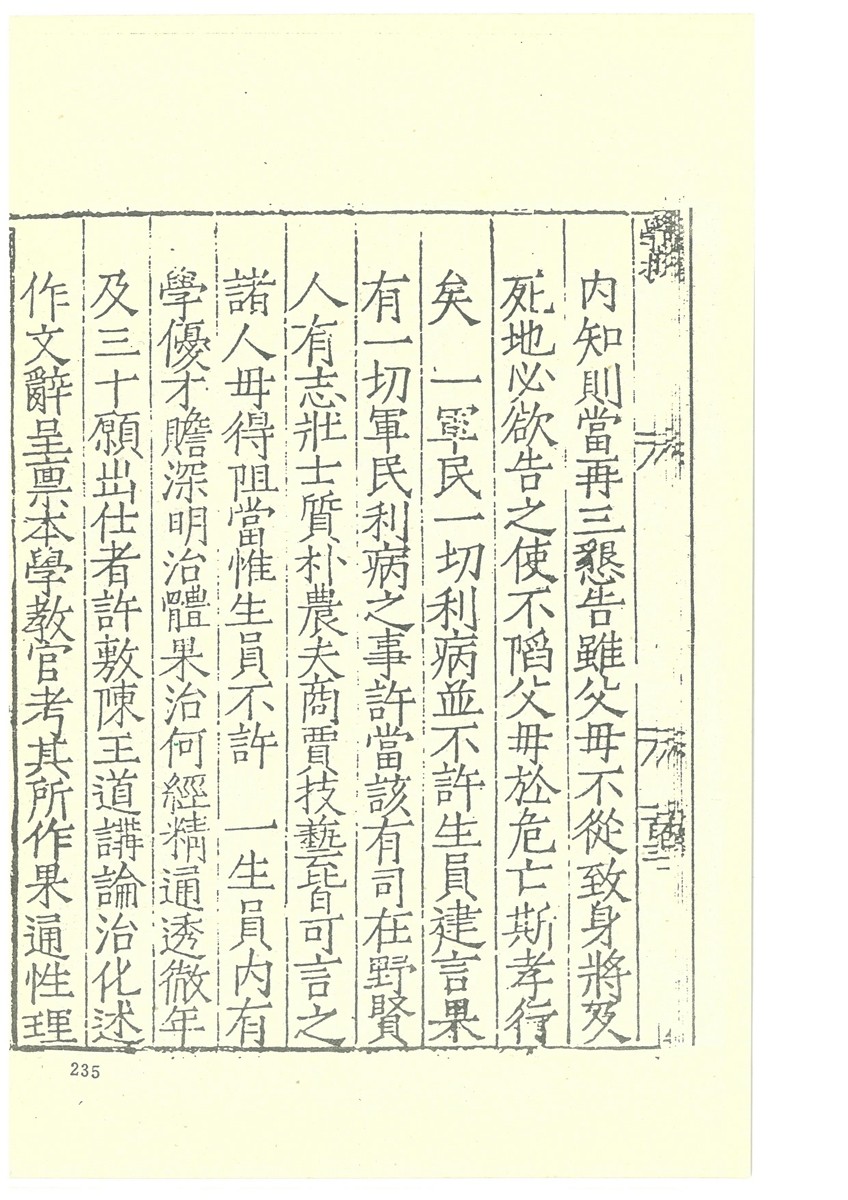 内知則當再三懇告雖父母不從致身將及
死地必欲告之使不陷父母於危亡斯孝行
矣　一軍民一切利病並不許生員建言果
有一切軍民利病之事許當該有司在野賢
人有志壯士質朴農夫商賈技藝皆可言之
諸人毋得阻當惟生員不許　一生員内有
學優才贍深明治體果治何經精通透徹年
及三十願出仕者許敷陳王道講論治化述
作文辭呈禀本學教官考其所作果通性理
235